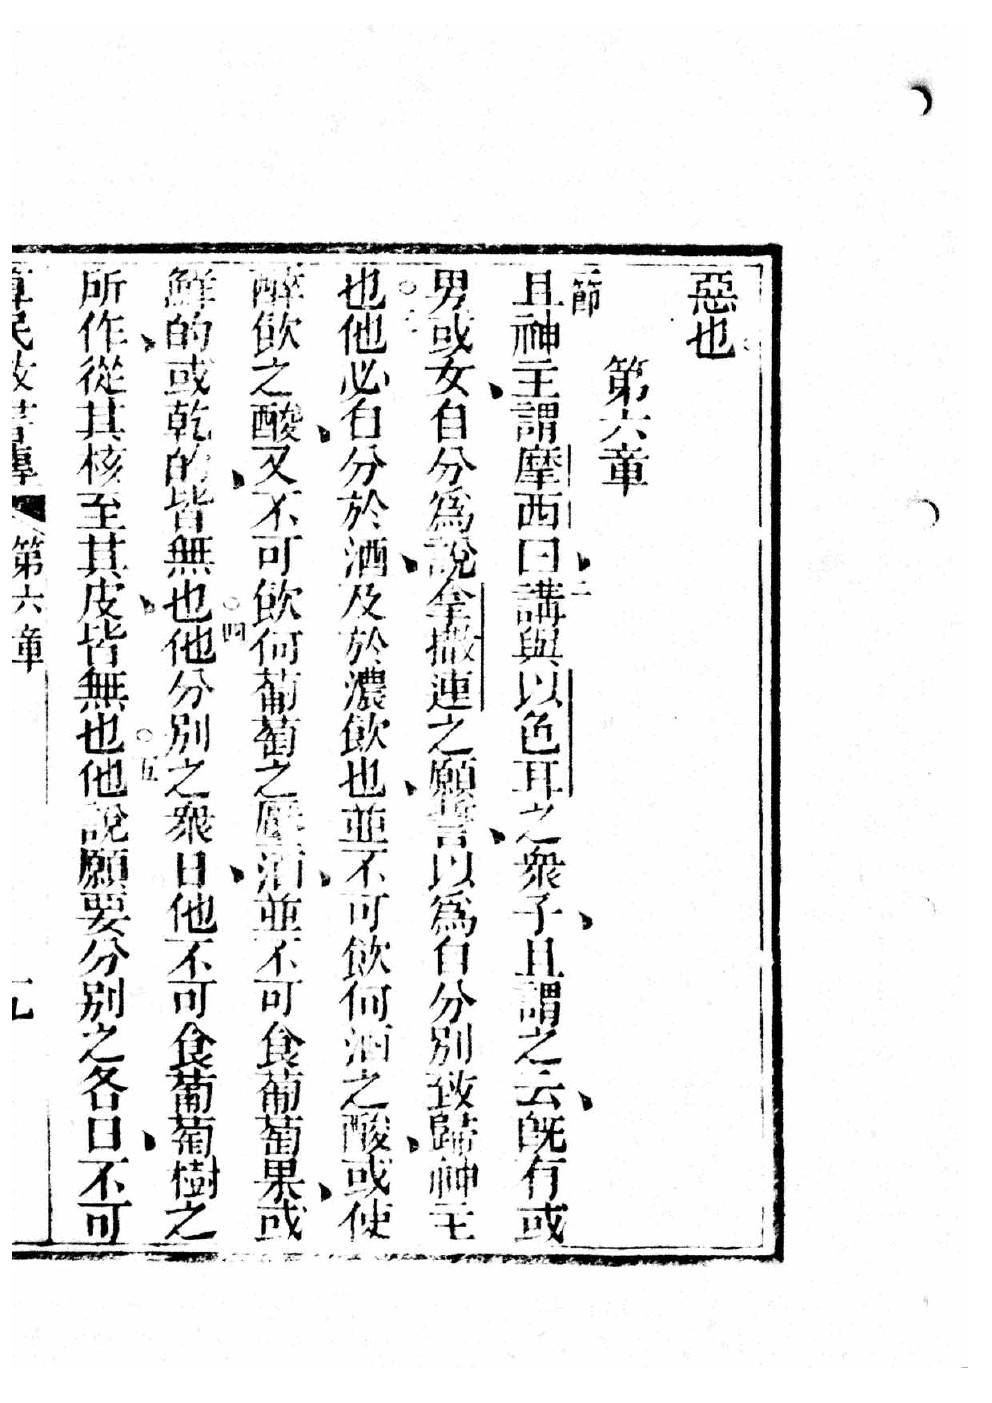 惡也
第六章
一節
且神主謂摩西曰二講與以色耳之衆子且謂之云旣有或
男或女自分爲說拿撒連之願誓以爲自分別致歸神主
也○三他必自分於酒及於濃飲也並不可飲何酒之酸或使
醉飲之酸又不可飲何葡萄之壓酒並不可食葡萄果或
鮮的或乾的皆無也○四他分別之衆日他不可食葡萄樹之
所作從其核至其皮皆無也○五他說願要分別之各日不可
算民數書傳 第六章 九